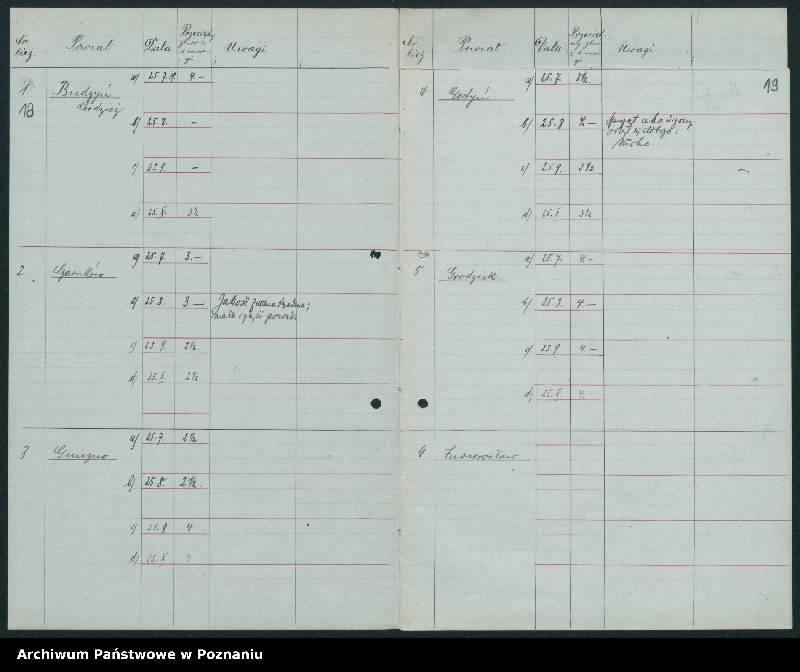 Nr. bież. Powiat Data Uwagi
1 Budzyń a) 25.7. 4.—
Chodzież
18
b) 25.8. —
c) 25.9. —
d) 25.X. 3½
2 Czarnków a) 25.7 3.—
b) 25.8. 3.— Jakość
c) 25.9. 2½
d) 25.X. 2½
3 Gniezno a) 25.7. 2½
b) 25.8. 2½
c) 25.9 4
d) 25.X 4
Nr. bież. Powiat Data Uwagi
19
4 Gostyń a) 25.7. 3½
b) 25.8
c) 25.9. 3½
d) 25.X. 3½
5 Grodzisk a) 25.7. 4.—
b) 25.8. 4—
c) 25.9. 4—
d) 25.X. 4.
6 Inowrocław
Archiwum Państwowe w Poznaniu